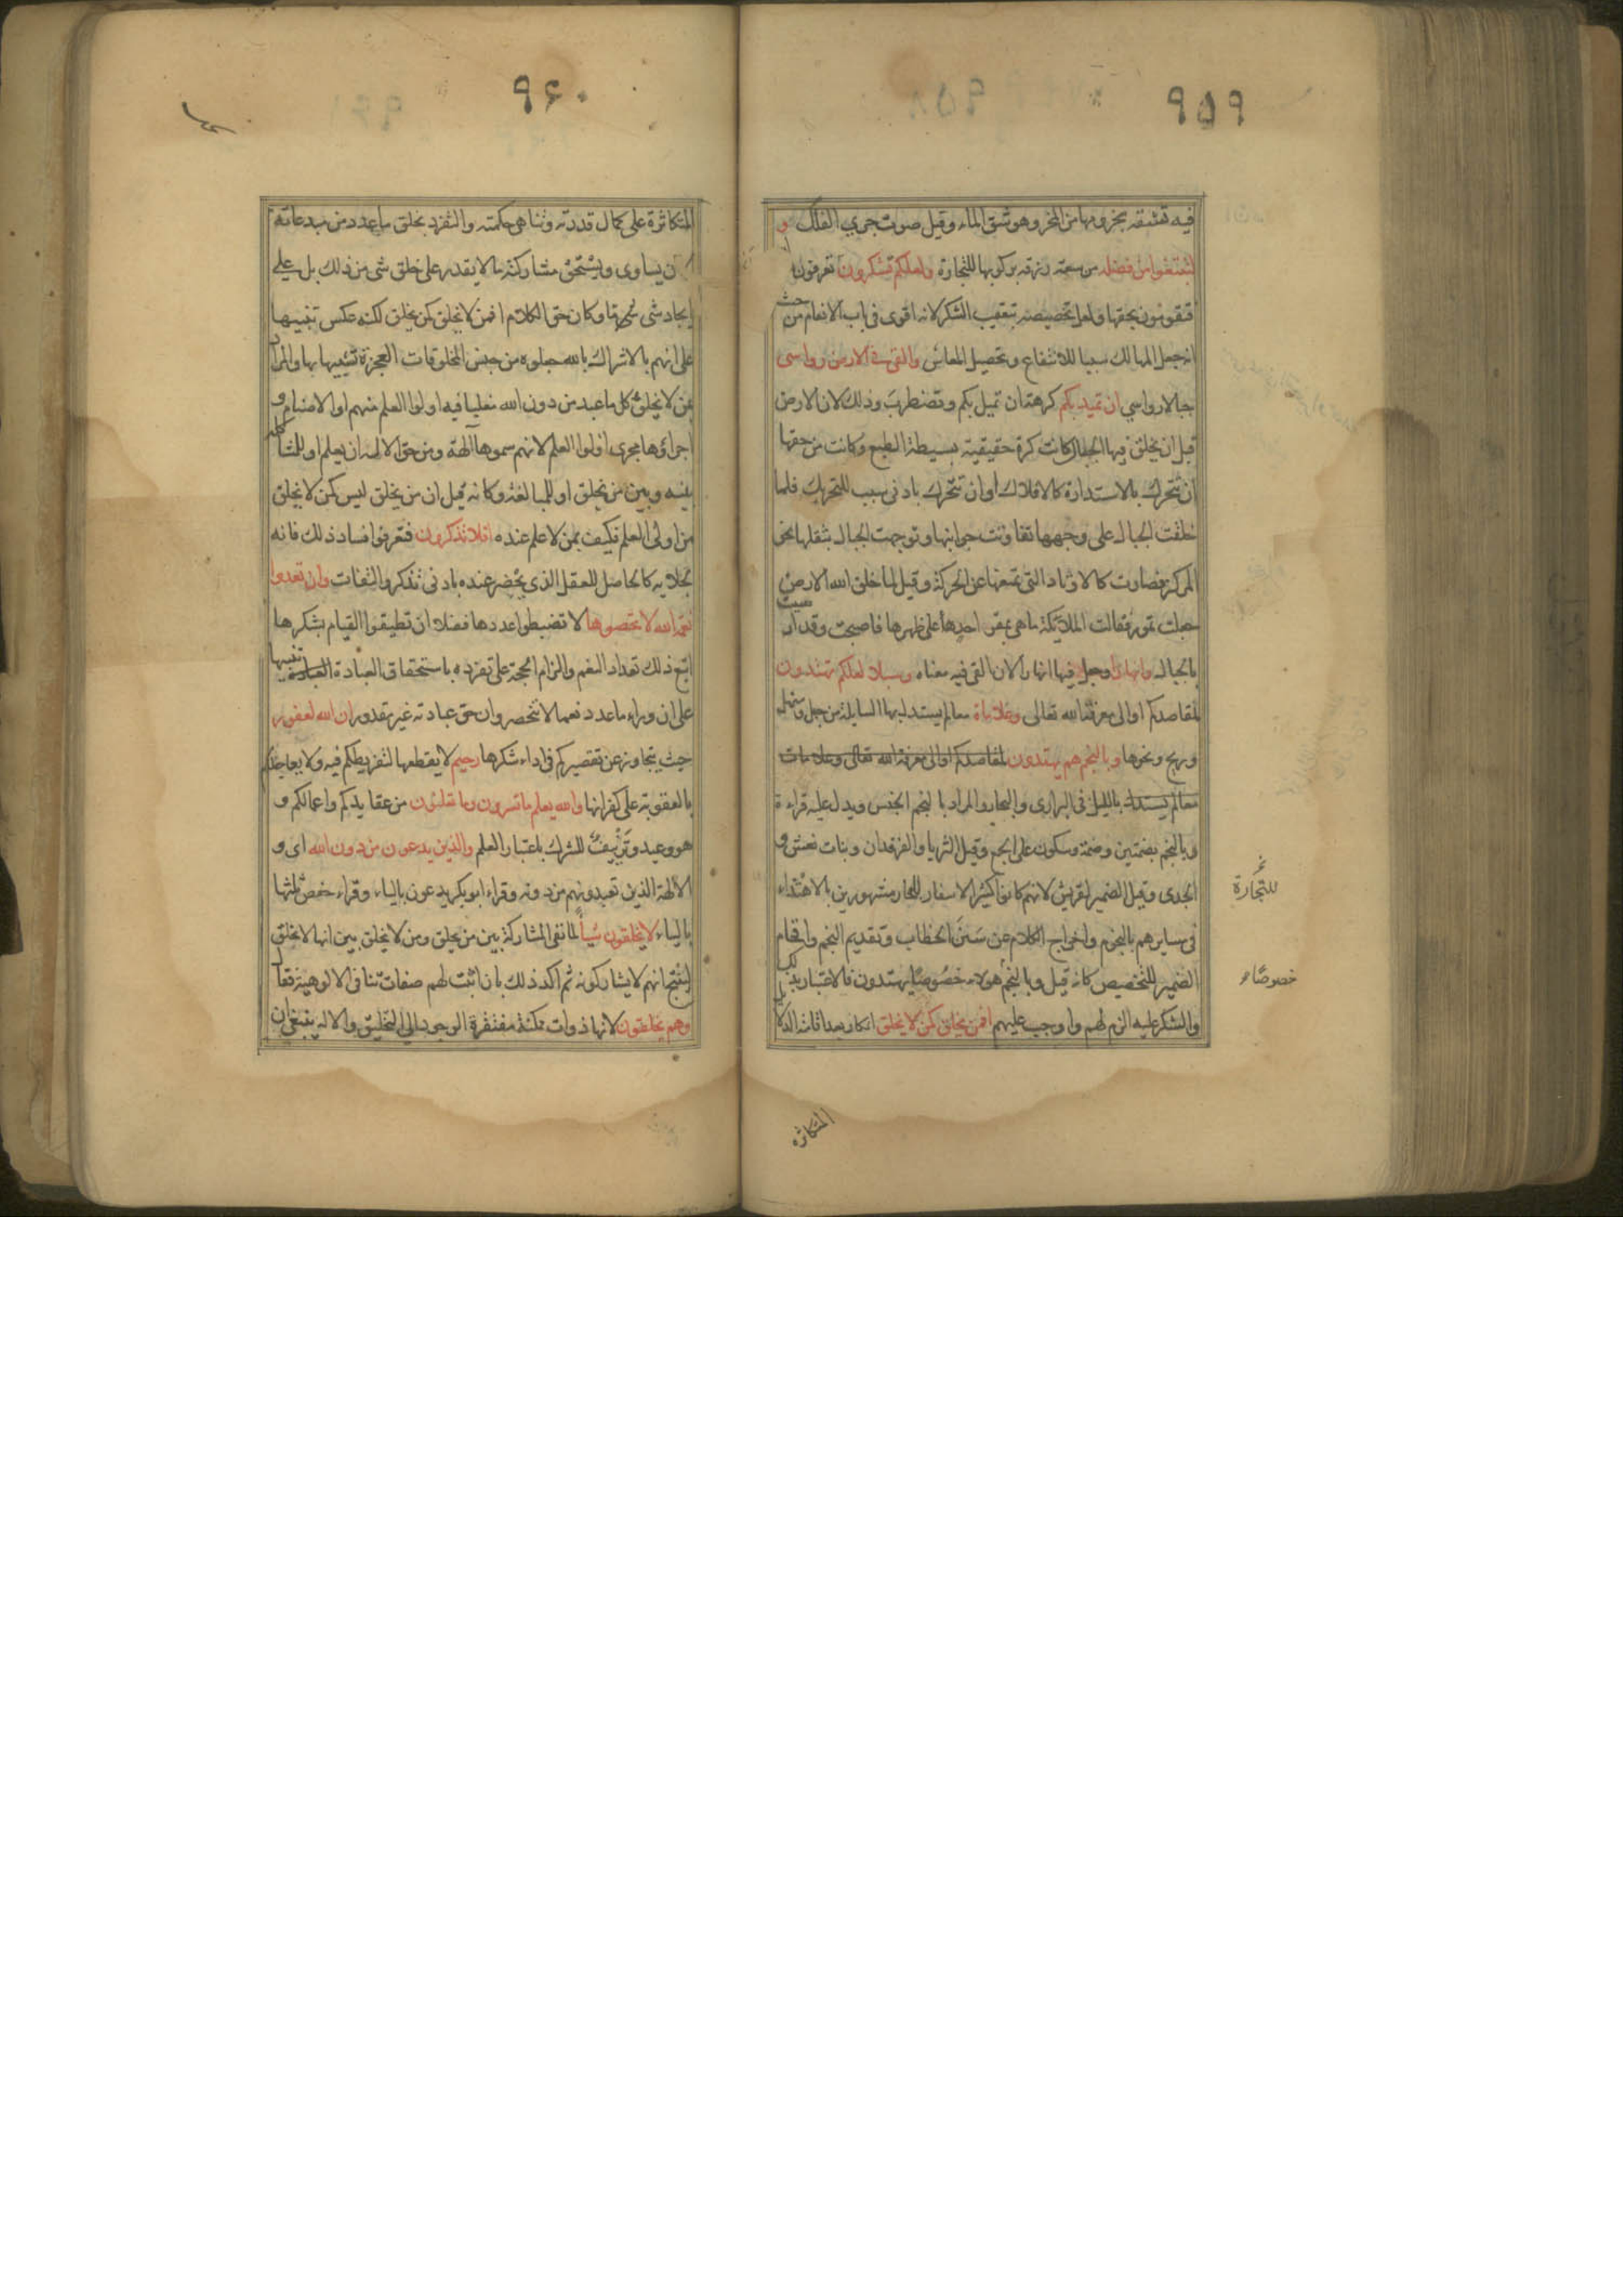 ٩٥٩
فيه تشقه بحزومها من المخر وهو شق الماء وقيل صوت جري الفلك و
لتبتغوا من فضله من سعة رزقه بركوبها للتجارة ولعلكم تشكرون تعرفون
فتقومون بحقها ولعل تخصيصه بتعقيب الشكر لانه اقوى في باب الانعام من حيث
انه جعل المهالك سببا للانتفاع وتحصيل المعاش والقى في الارض رواسى
جبالا رواسي ان تميد بكم كرهة ان تميل بكم وتضطرب وذلك لان الارض
قبل ان يخلق فيها الجبال كانت كرة حقيقية بسيطة الطبع وكانت من حقها
ان تتحرك بالاستدارة كالافلاك او ان تتحرك بادنى سبب للتحريك فلما
خلقت الجبال على وجهها تفاوتت جوانبها وتوجهت الجبال بثقلها نحو
المركز فصارت كالاوتاد التى تمنعها عن الحركة وقيل لما خلق الله الارض
جعلت تمور فقالت الملائكة ما هي بمقر احد على ظهرها فاصبحت وقد ارسيت
بالجبال وانهارا وجعل فيها انهارا لان القى فيه معناه وسبلا لعلكم تهتدون
لمقاصدكم او الى معرفة الله تعالى وعلامات معالم يستدل بها السابلة من جبل وسهل
وريح ونحوها وبالنجم هم يهتدون لمقاصدكم او الى معرفة الله تعالى وعلامات
معالم يستدل بالليل في البرارى والبحار والمراد بالنجم الجنس ويدل عليه قراءة
وبالنجم بضمتين وضمة وسكون على الجمع وقيل الثريا والفرقدان وبنات نعش و
الجدى وقيل الضمير لقريش لانهم كانوا كثير الاسفار للتجار مشهورين بالاهتداء
للتجارة
في مسايرهم بالنجوم واخراج الكلام عن سنن الخطاب وتقديم النجم واقحام
الضمير للتخصيص كانه قيل وبالنجم هولاء خصوصا يهتدون فالاعتبار بذلك
خصوصا
والشكر عليه الزم لهم واوجب عليهم افمن يخلق كمن لا يخلق انكار بعد اقامة الدلايل
المتكاثرة
٩٦٠
المتكاثرة على كمال قدرته وتناهي حكمته والتفرد بخلق ما عدد من مبدعاته
ان يساوى ويستحق مشاركته ما لا يقدر على خلق شى من ذلك بل على
ايجاد شى ما وكان حق الكلام افمن لا يخلق كمن يخلق لكنه عكس تنبيها
على انهم بالاشراك بالله جعلوه من جنس المخلوقات العجزة شبيها بها والمراد
بمن لا يخلق كل ما عبد من دون الله مغلبا فيه اولوا العلم منهم او الاصنام و
اجراؤها مجرى اولوا العلم لانهم سموها آلهة ومن حق الاله ان يعلم او للمشاكلة
بينه وبين من يخلق او للمبالغة وكانه قيل ان من يخلق ليس كمن لا يخلق
من اولى العلم فكيف بمن لا علم عنده افلا تذكرون فتعرفوا فساد ذلك فانه
لجلايه كالحاصل للعقل الذي يحضر عنده بادنى تذكر والتفات وان تعدوا
نعمة الله لا تحصوها لا تضبطوا عددها فضلا ان تطيقوا القيام بشكرها
اتبع ذلك تعداد النعم والزام الحجة على تفرده باستحقاق العبادة تنبيها
على ان وراء ما عدد نعما لا تنحصر وان حق عبادته غير مقدور ان الله لغفور
حيث يتجاوز عن تقصيركم في اداء شكرها رحيم لا يقطعها لتفريطكم فيه ولا يعاجلكم
بالعقوبة على كفرانها والله يعلم ما تسرون وما تعلنون من عقايدكم واعمالكم و
هو وعيد وتزييف للشرك باعتبار العلم والذين يدعون من دون الله اى و
الآلهة الذين تعبدونهم من دونه وقراء ابو بكر يدعون بالياء وقراء حفص ثلثها
بالياء لا يخلقون شيا لما نفى المشاركة بين من يخلق ومن لا يخلق بين انها لا تخلق
لينتج انهم لا يشاركونه ثم اكد ذلك بان اثبت لهم صفات تنافى الالوهية فقال
وهم يخلقون لانها ذوات ممكنة مفتقرة الوجود الى التخليق والاله ينبغي ان